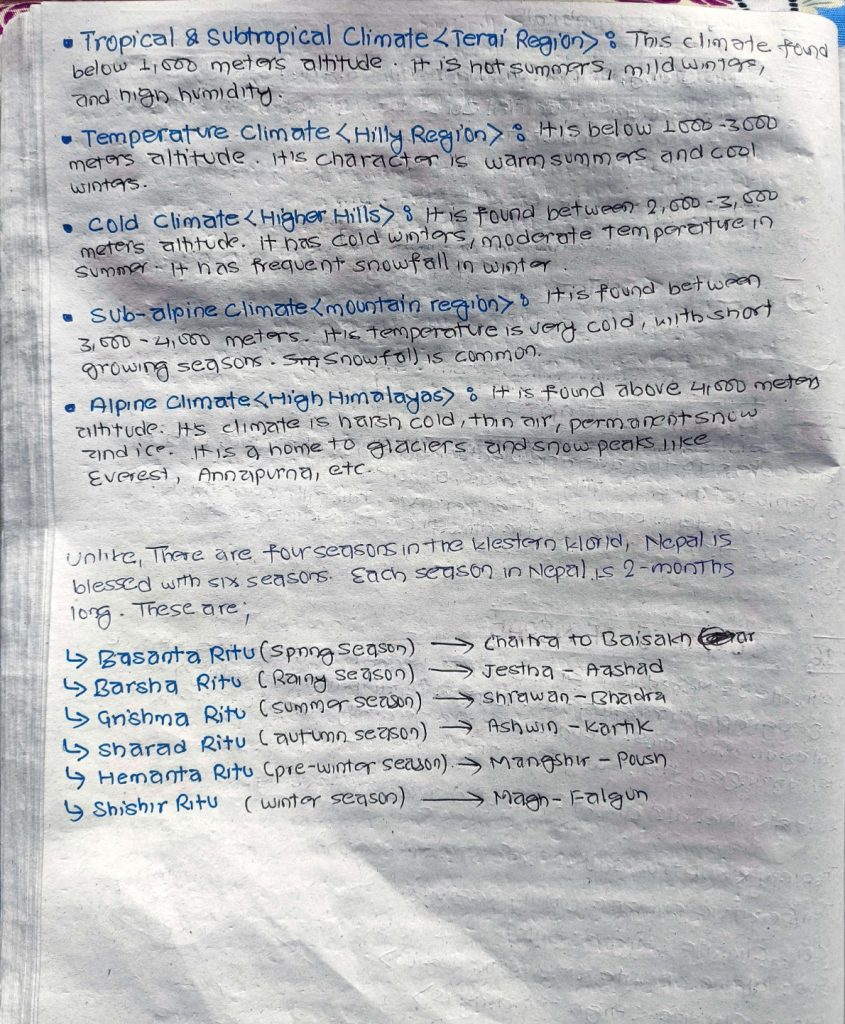 • Tropical & Subtropical Climate <Terai Region> : This climate found
below 1,000 meters altitude. It is hot summers, mild winters,
and high humidity.
• Temperature Climate <Hilly Region> : It is below 1000-3000
meters altitude. It's character is warm summers and cool
winters.
• Cold Climate <Higher Hills> : It is found between 2,000-3,000
meters altitude. it has cold winters, moderate temperature in
summer. It has frequent snowfall in winter.
• Sub-alpine Climate <mountain region> : It is found between
3,000 - 4,000 meters. It's temperature is very cold, with short
growing seasons. Snowfall is common.
• Alpine Climate <High Himalayas> : it is found above 4,000 meters
altitude. It's climate is harsh cold, thin air, permanent snow
and ice. It is a home to glaciers and snow peaks like
Everest, Annapurna, etc.
Unlike, There are four seasons in the Western World, Nepal is
blessed with six seasons. Each season in Nepal is 2-months
long. These are;
↳ Basanta Ritu (Spring season) → Chaitra to Baisakh
↳ Barsha Ritu (Rainy season) → Jestha - Aashad
↳ Grishma Ritu (summer season) → Shrawan - Bhadra
↳ Sharad Ritu (autumn season) → Ashwin - Kartik
↳ Hemanta Ritu (pre-winter season). → Mangshir - Poush
↳ Shishir Ritu (winter season) → Magh - Falgun